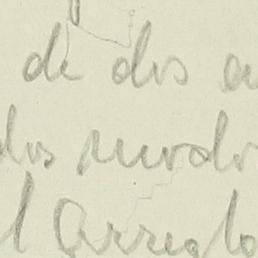 de dos a
dos modo
l arreglo